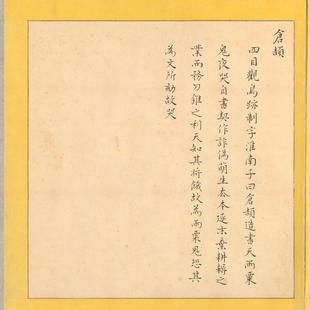 倉頡
四目觀鳥跡制字淮南子曰倉頡造書天雨粟
鬼夜哭自書契作詐偽萌生去本逐末棄耕耨之
業而務刀錐之利天知其將餓故為雨粟鬼恐其
為文所劾故哭